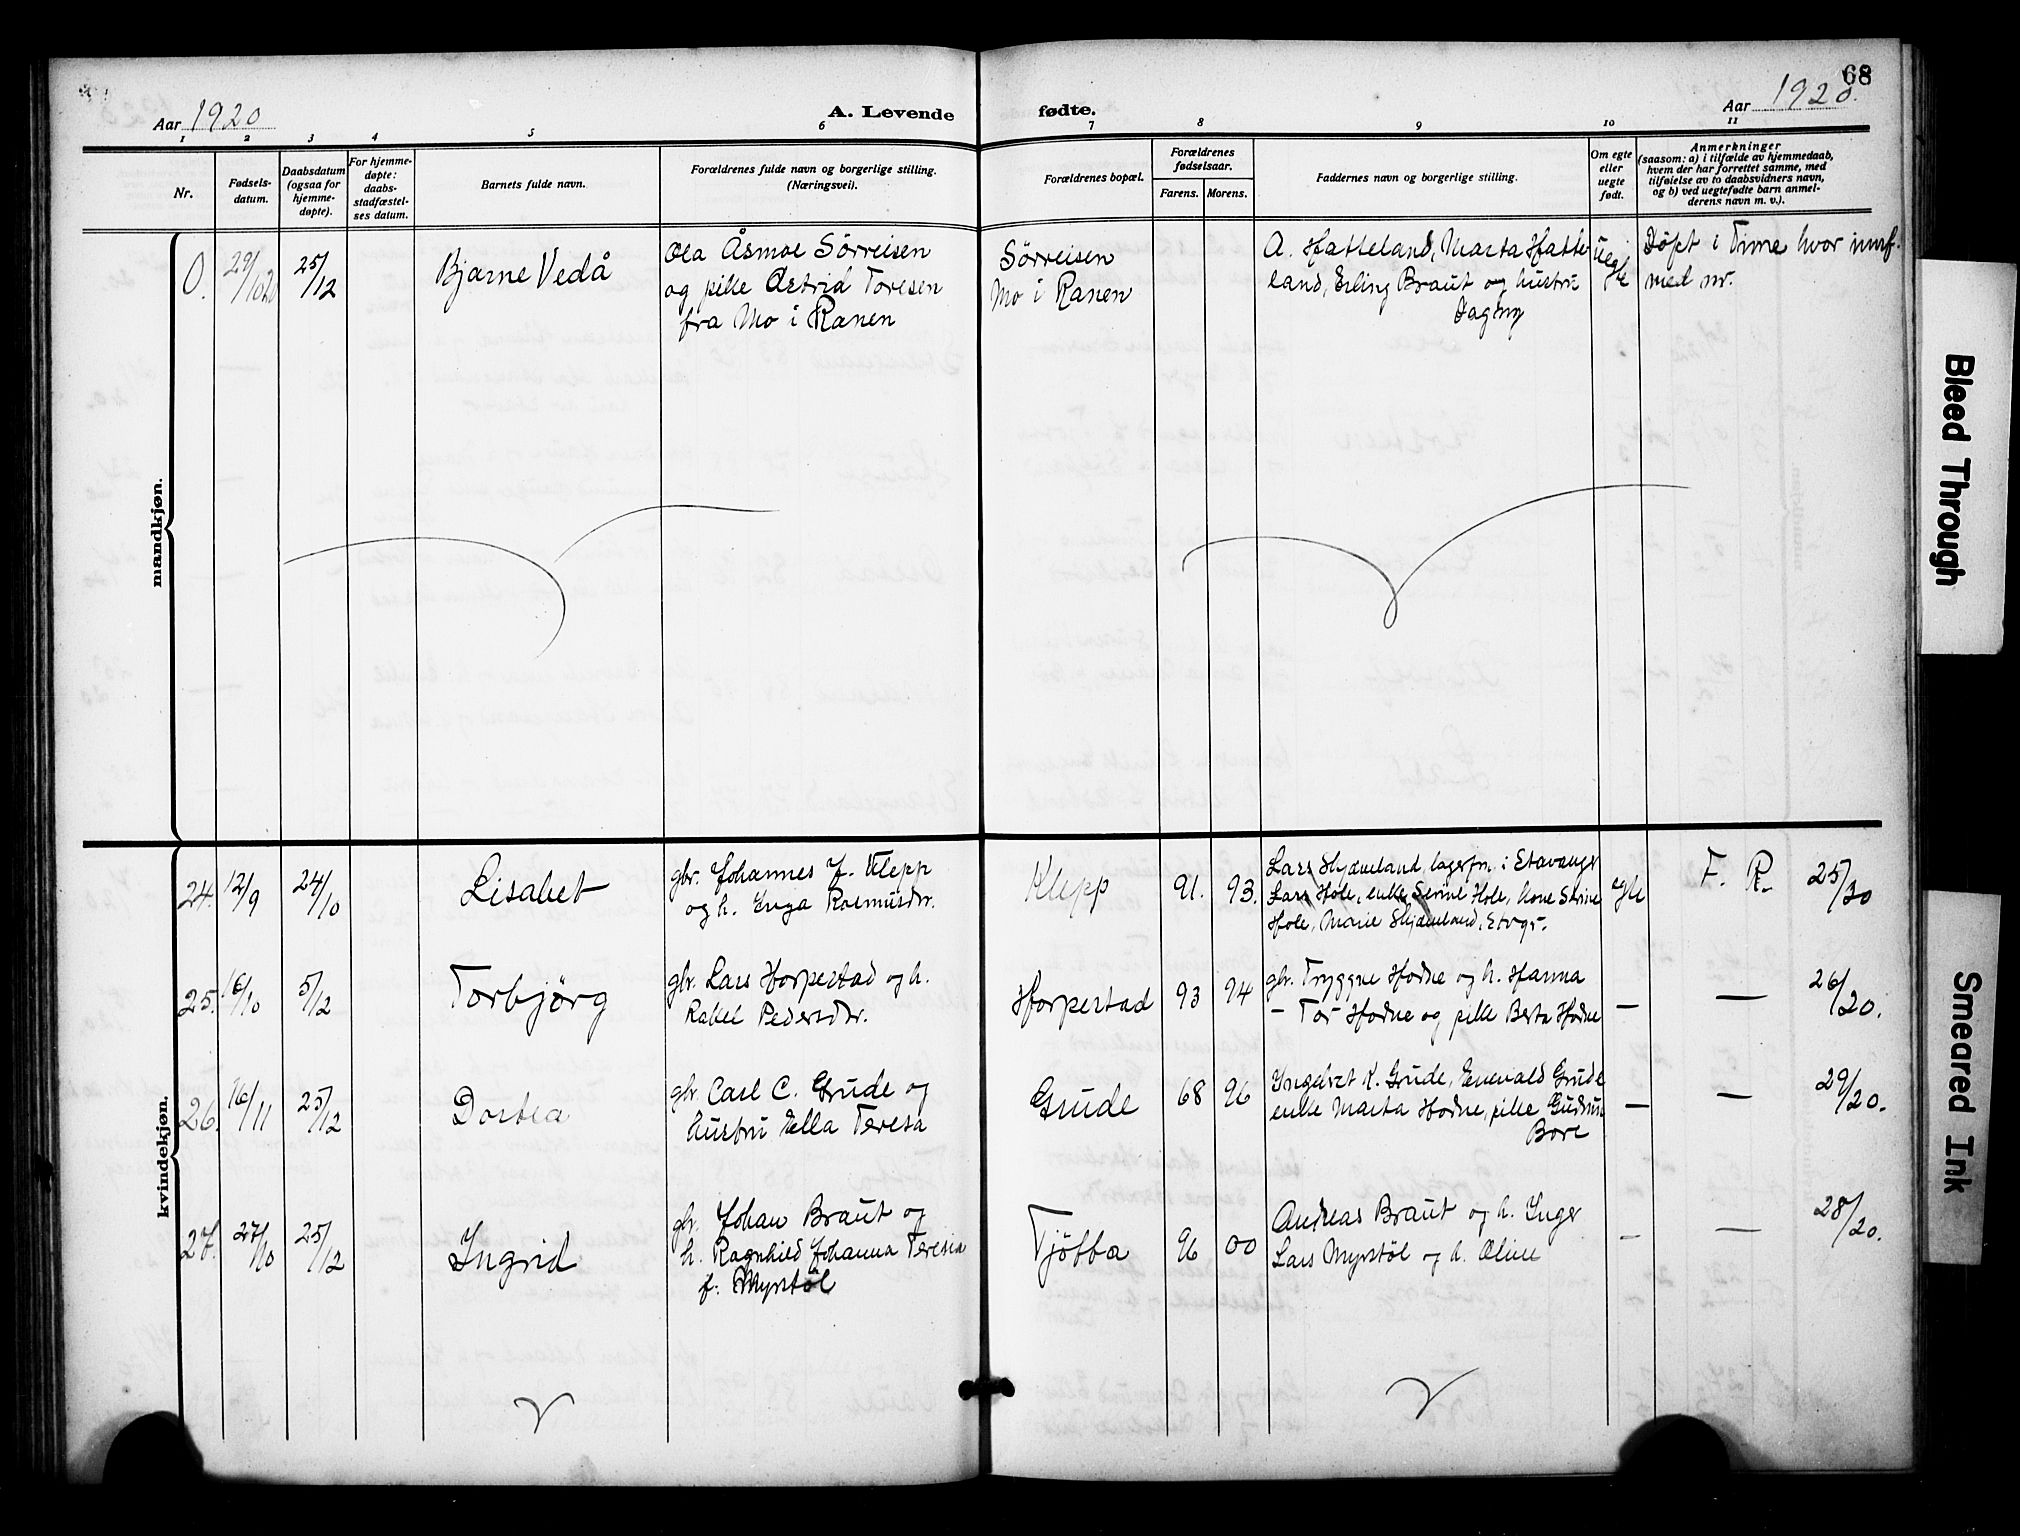 68
Aar 1920
A. Levende
fødte.
Aar 1920.
1 2 3 4 5 6 7 8 9 10 11
Nr.
Fødsels-
datum.
Daabsdatum
(ogsaa for
hjemme-
døpte).
For hjemme-
døpte:
daabs-
stadfæstel-
ses datum.
Barnets fulde navn.
Forældrenes fulde navn og borgerlige stilling.
(Næringsvei).
Forældrenes bopæl.
Forældrenes
fødselsaar.
Farens. Morens.
Faddernes navn og borgerlige stilling.
Om egte
eller
uegte
født.
Anmerkninger
(saasom: a) i tilfælde av hjemmedaab,
hvem der har forrettet samme, med
tilføielse av to daabsvidners navn,
og b) ved uegtefødte barn anmel-
derens navn m. v.).
mandkjøn.
0. 29/10 20 25/12
Bjarne Vedå
Ola Åsmoe Sörreisen
og pike Astrid Toresen
fra Mo i Ranen
Sörreisen
Mo i Ranen
A. Hatteland, Marta Hatte
land, Erling Braut og hustru
Dagny
uegte
Döpt i Time hvor innf.
med nr.
kvindekjøn.
24. 12/9 24/10
Lisabet
gbr. Johannes J. Klepp
og h. Inga Rasmusdtr.
Klepp
91. 93.
Lars Skjæveland, lagerfm. i Stavanger
Lars Hole, enke Serine Hole, kone Serine
Hole, Marie Skjæveland, Stvgr.
egte
F. R. 25/20
25. 16/10 5/12
Torbjörg
gbr. Lars Horpestad og h.
Rakel Pedersdtr.
Horpestad
93 94
gbr. Tryggve Hodne og h. Hanna
- Tor Hodne og pike Berta Hodne
— — 26/20.
26. 16/11 25/12
Dortea
gbr. Carl C. Grude og
hustru Ella Teresa
Grude
68 96
Ingebret K. Grude, Enevald Grude
enke Marta Hodne, pike Gudrun
Bore
— — 29/20.
27. 27/10 25/12
Ingrid
gbr. Johan Braut og
h. Ragnhild Johanna Teresia
f. Myrstöl
Tjötta
96 00
Andreas Braut og h. Inger
Lars Myrstöl og h. Oline
— — 28/20.
Bleed Through
Smeared Ink